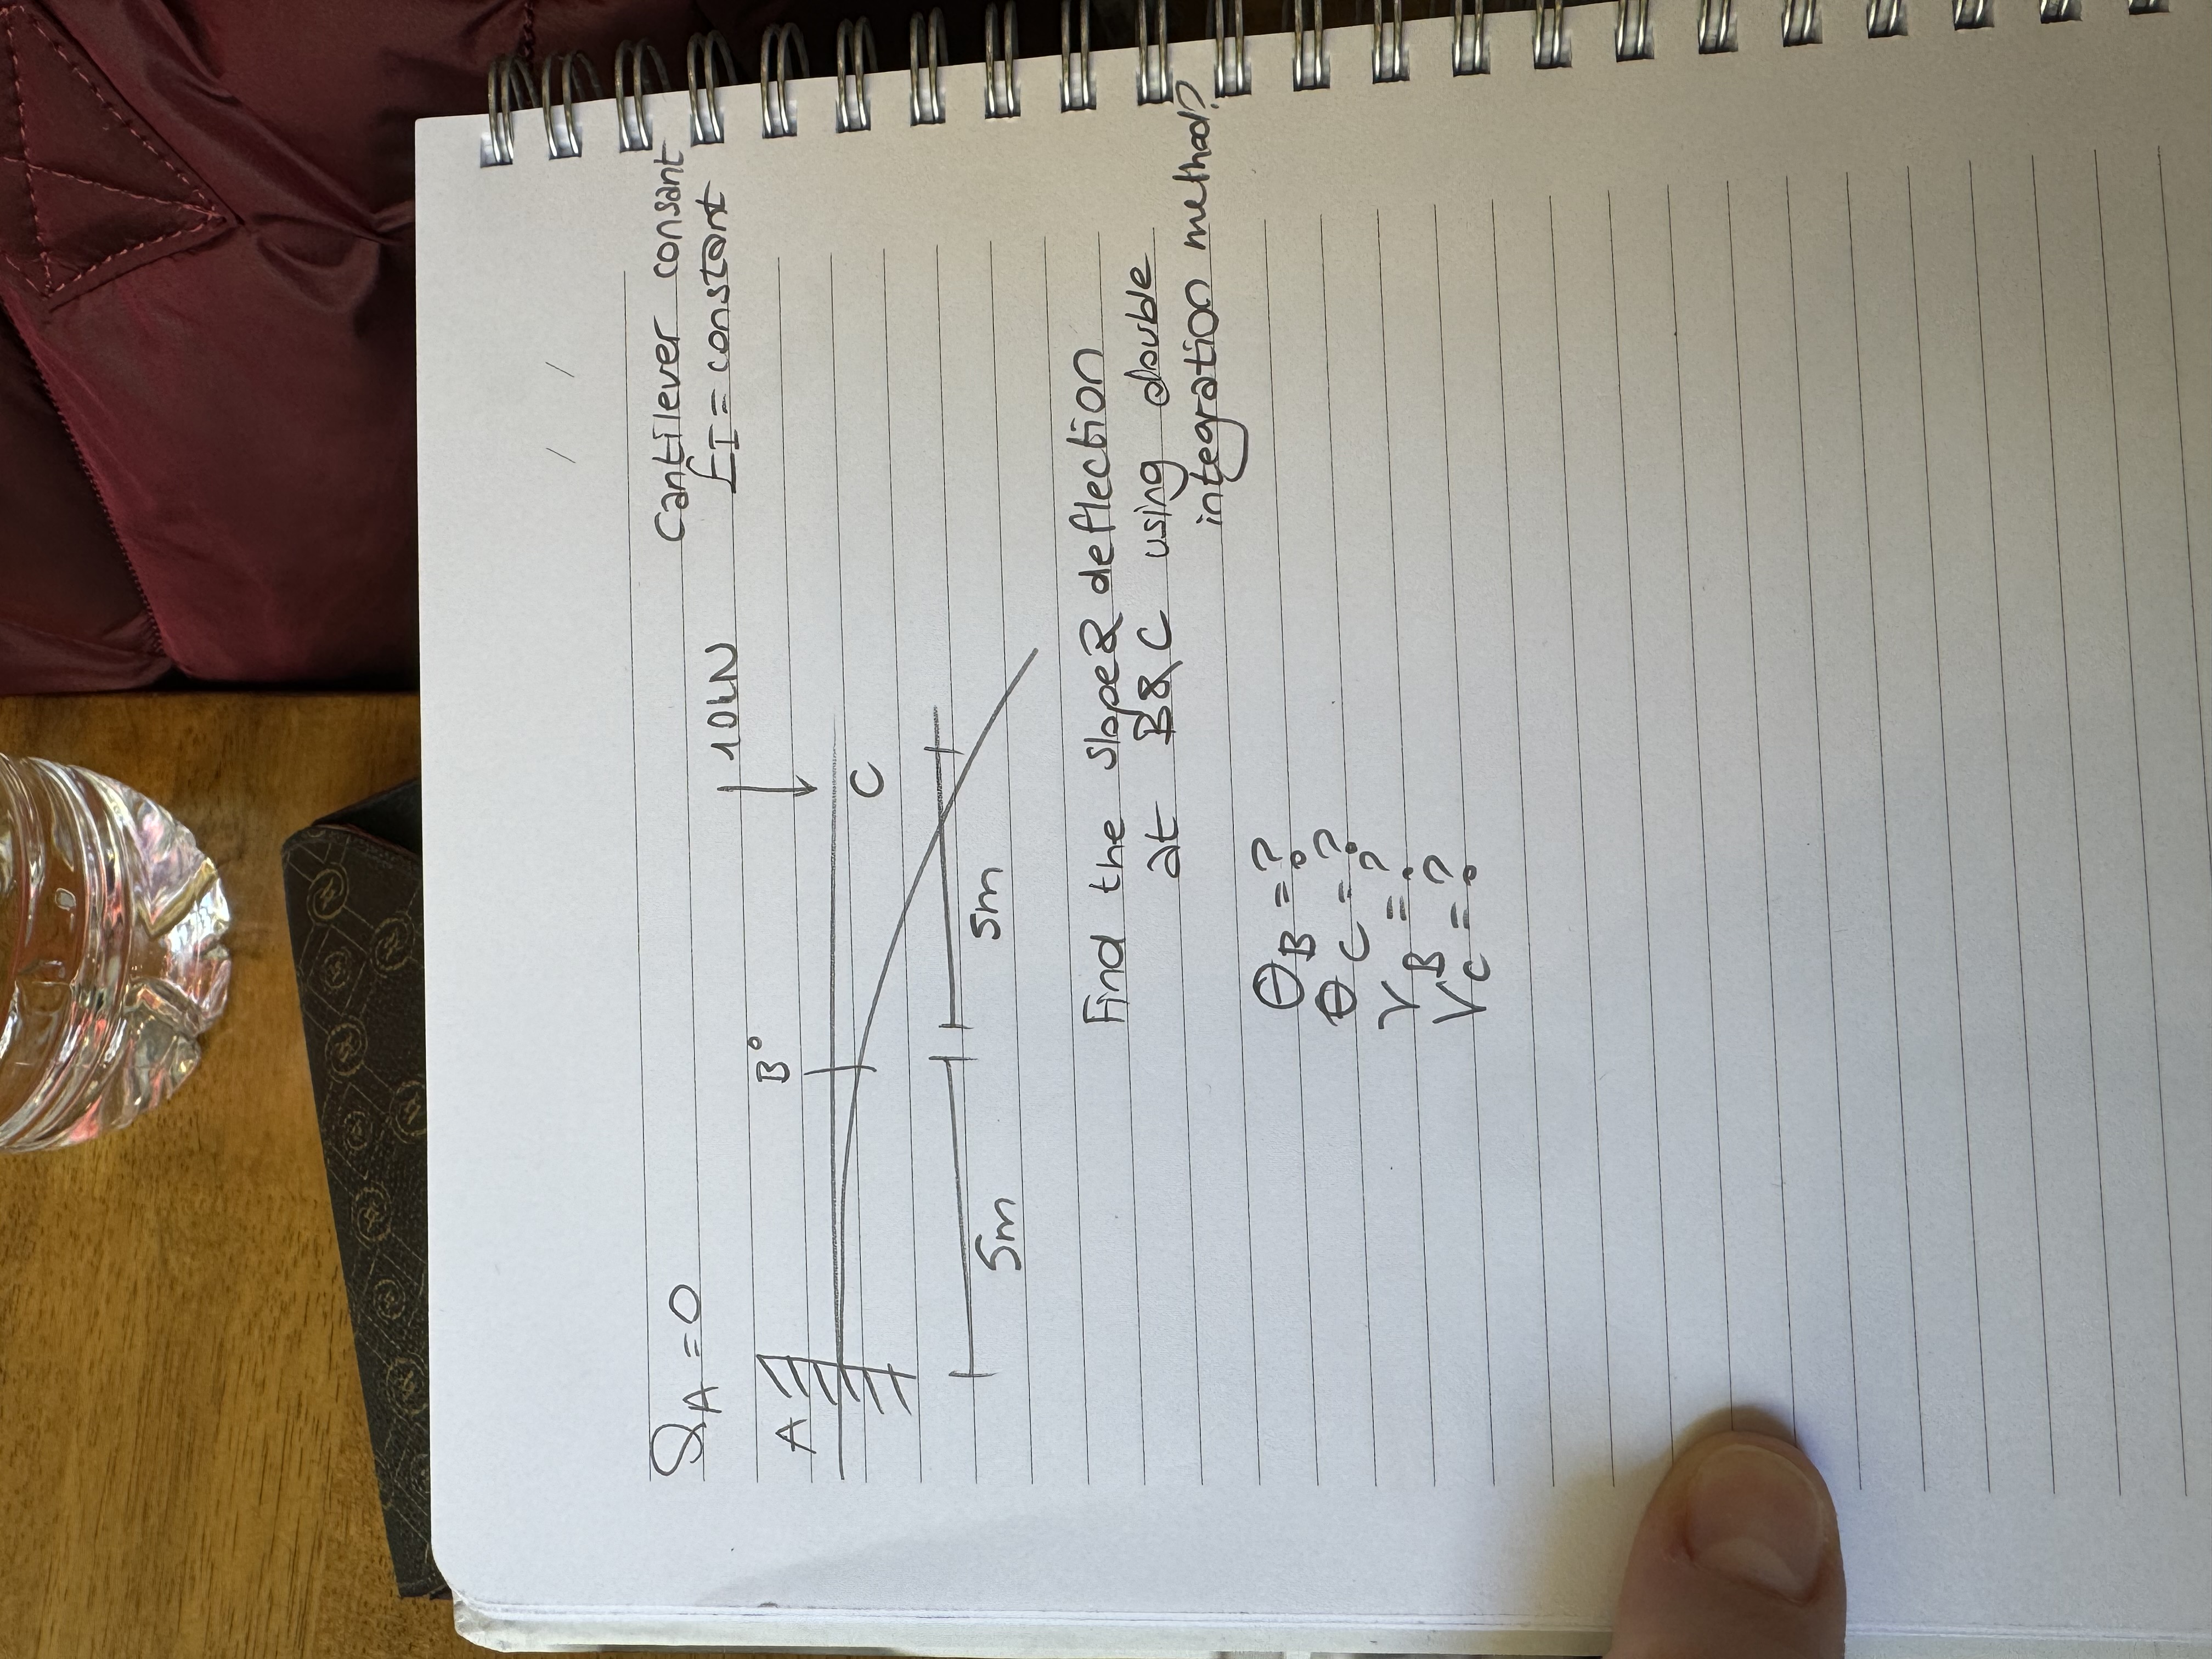 Cantilever consant
EI = constant
θA = 0
10kN
A
B
C
5m
5m
Find the slope & deflection
at B & C using double
integration method?
θB = ?
θC = ?
YB = ?
YC = ?